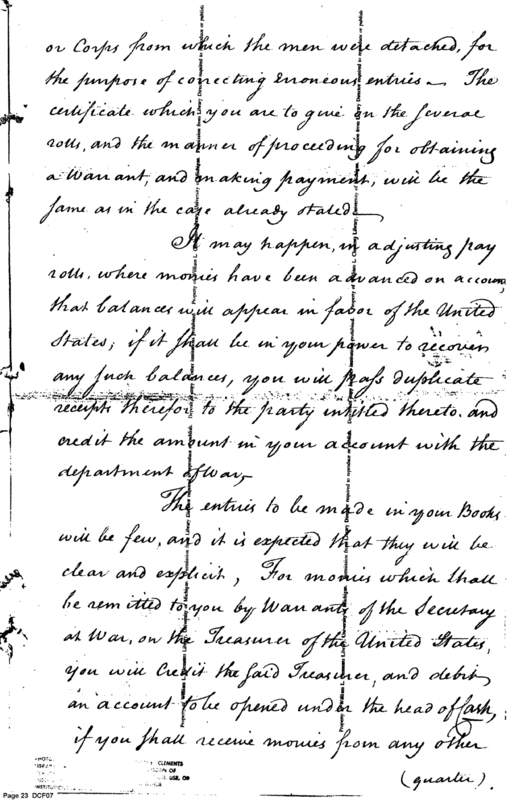 or Corps from which the men were detached, for
the purpose of correcting erroneous entries. The
certificate which you are to give on the several
rolls, and the manner of proceeding for obtaining
a Warrant, and making payment, will be the
same as in the case already stated
It may happen, in adjusting pay
rolls, where monies have been advanced on account,
that balances will appear in favor of the United
States; if it shall be in your power to recover
any such balances, you will pass duplicate
receipts therefor to the party intitled thereto, and
credit the amount in your account with the
department of War,
The entries to be made in your Books
will be few, and it is expected that they will be
clear and explicit, For monies which shall
be remitted to you by Warrants of the Secretary
at War, on the Treasurer of the United States,
you will Credit the said Treasurer, and debit
an account to be opened under the head of Cash,
if you shall receive monies from any other
(quarter).
CLEMENTS
OF
USE, OR
Page 23 DCF07